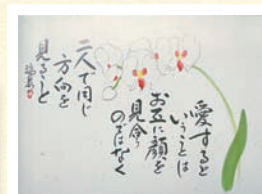 愛すると
いうことは
お互に顔を
見合う
のではなく
二人で同じ
方向を
見ること